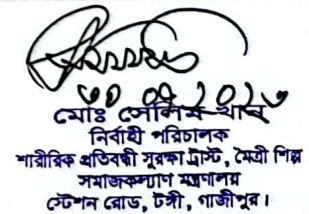 মোঃ সেলিম খান
নির্বাহী পরিচালক
শারীরিক প্রতিবন্ধী সুরক্ষা ট্রাস্ট, মৈত্রী শিল্প
সমাজকল্যাণ মন্ত্রণালয়
স্টেশন রোড, টঙ্গী, গাজীপুর।